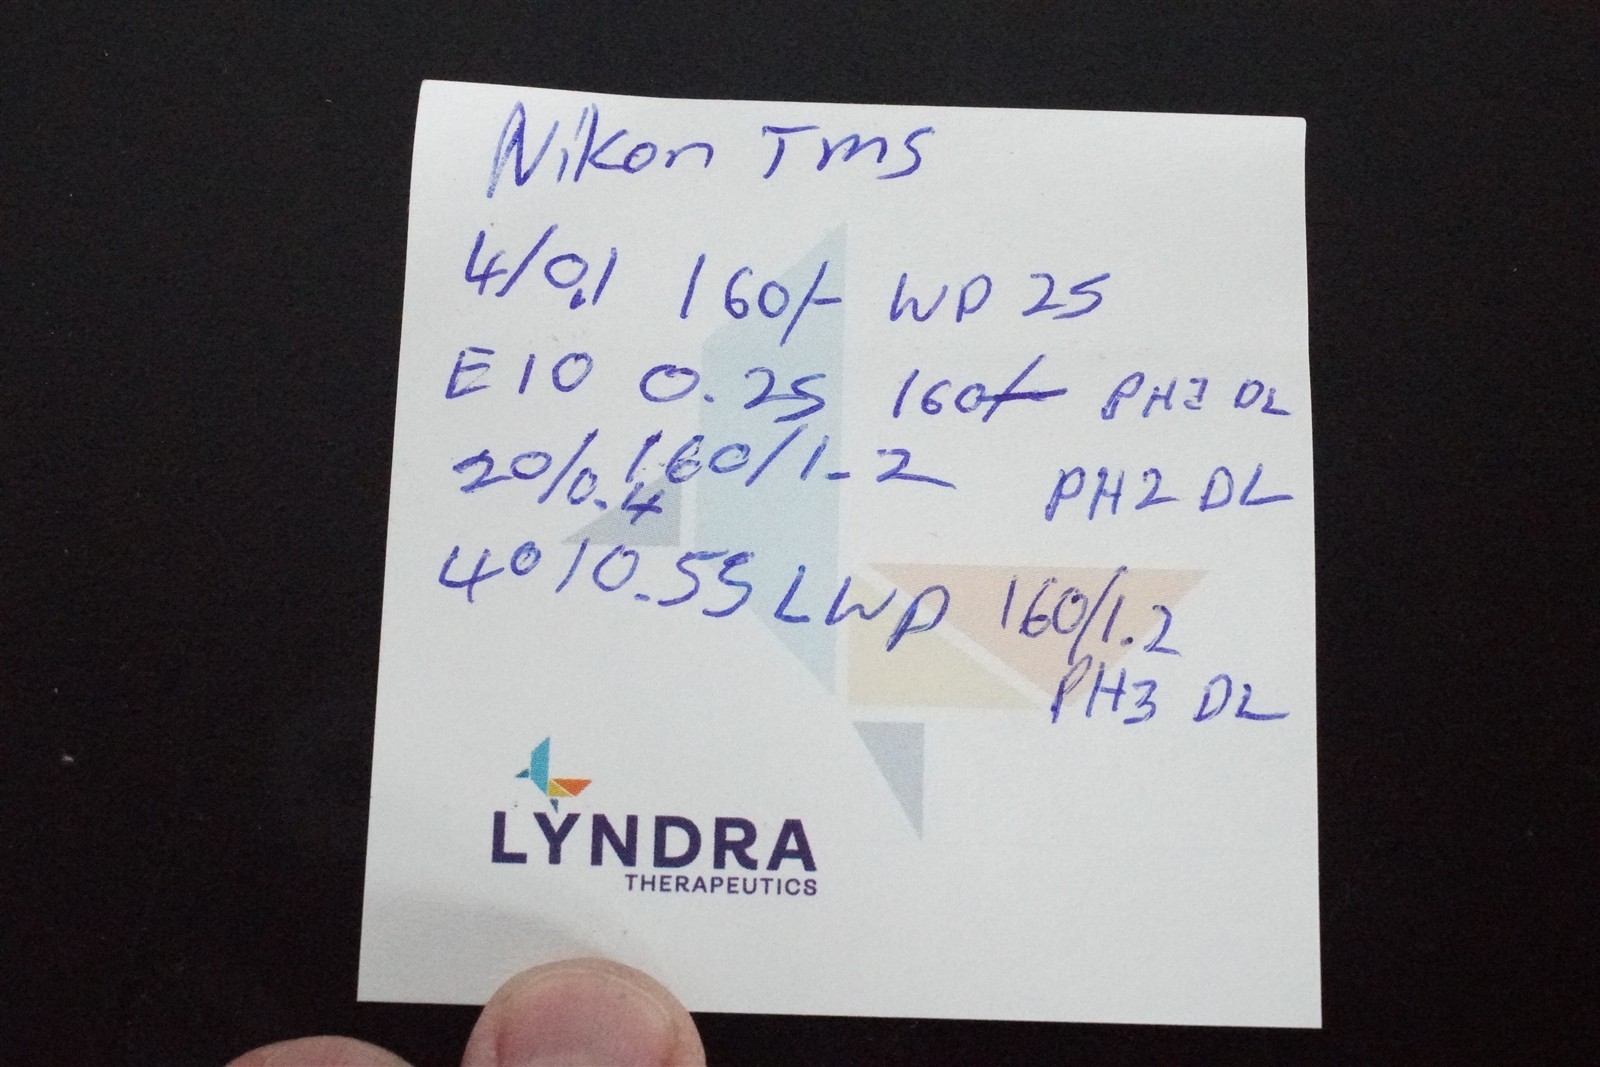 Nikon TMS
4/0.1 160/- WD 25
E10 0.25 160/- PH2 DL
20/0.4 160/1.2 PH2 DL
40/0.55 LWD 160/1.2
PH3 DL
LYNDRA
THERAPEUTICS